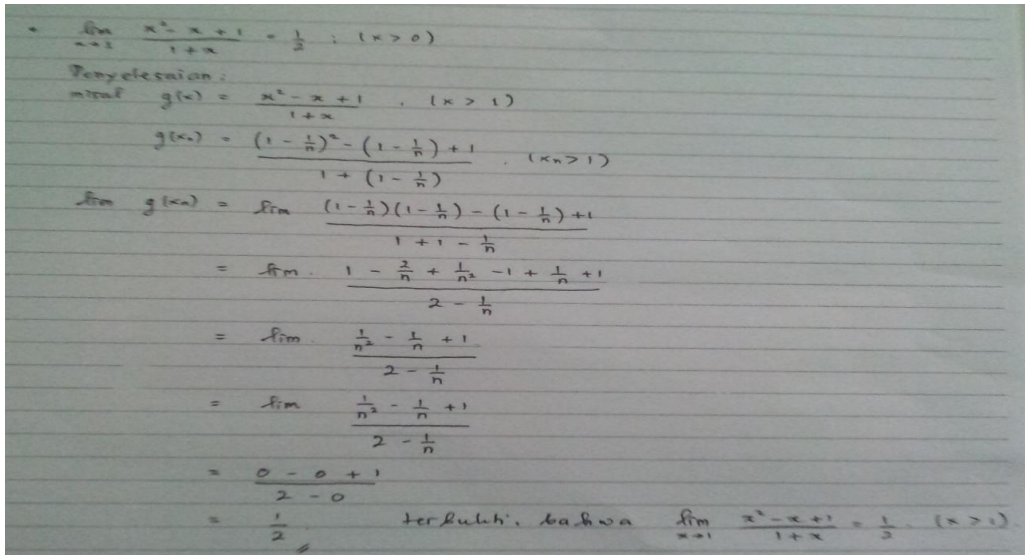 • lim x→1 (x² - x + 1)/(1 + x) = 1/2 ; (x > 0)
Penyelesaian :
misal g(x) = (x² - x + 1)/(1 + x) , (x > 1)
g(xₙ) = ((1 - 1/n)² - (1 - 1/n) + 1)/(1 + (1 - 1/n)) , (xₙ > 1)
lim g(xₙ) = lim ((1 - 1/n)(1 - 1/n) - (1 - 1/n) + 1)/(1 + 1 - 1/n)
= lim (1 - 2/n + 1/n² - 1 + 1/n + 1)/(2 - 1/n)
= lim (1/n² - 1/n + 1)/(2 - 1/n)
= lim (1/n² - 1/n + 1)/(2 - 1/n)
= (0 - 0 + 1)/(2 - 0)
= 1/2 terbukti, bahwa lim x→1 (x² - x + 1)/(1 + x) = 1/2 . (x > 1)